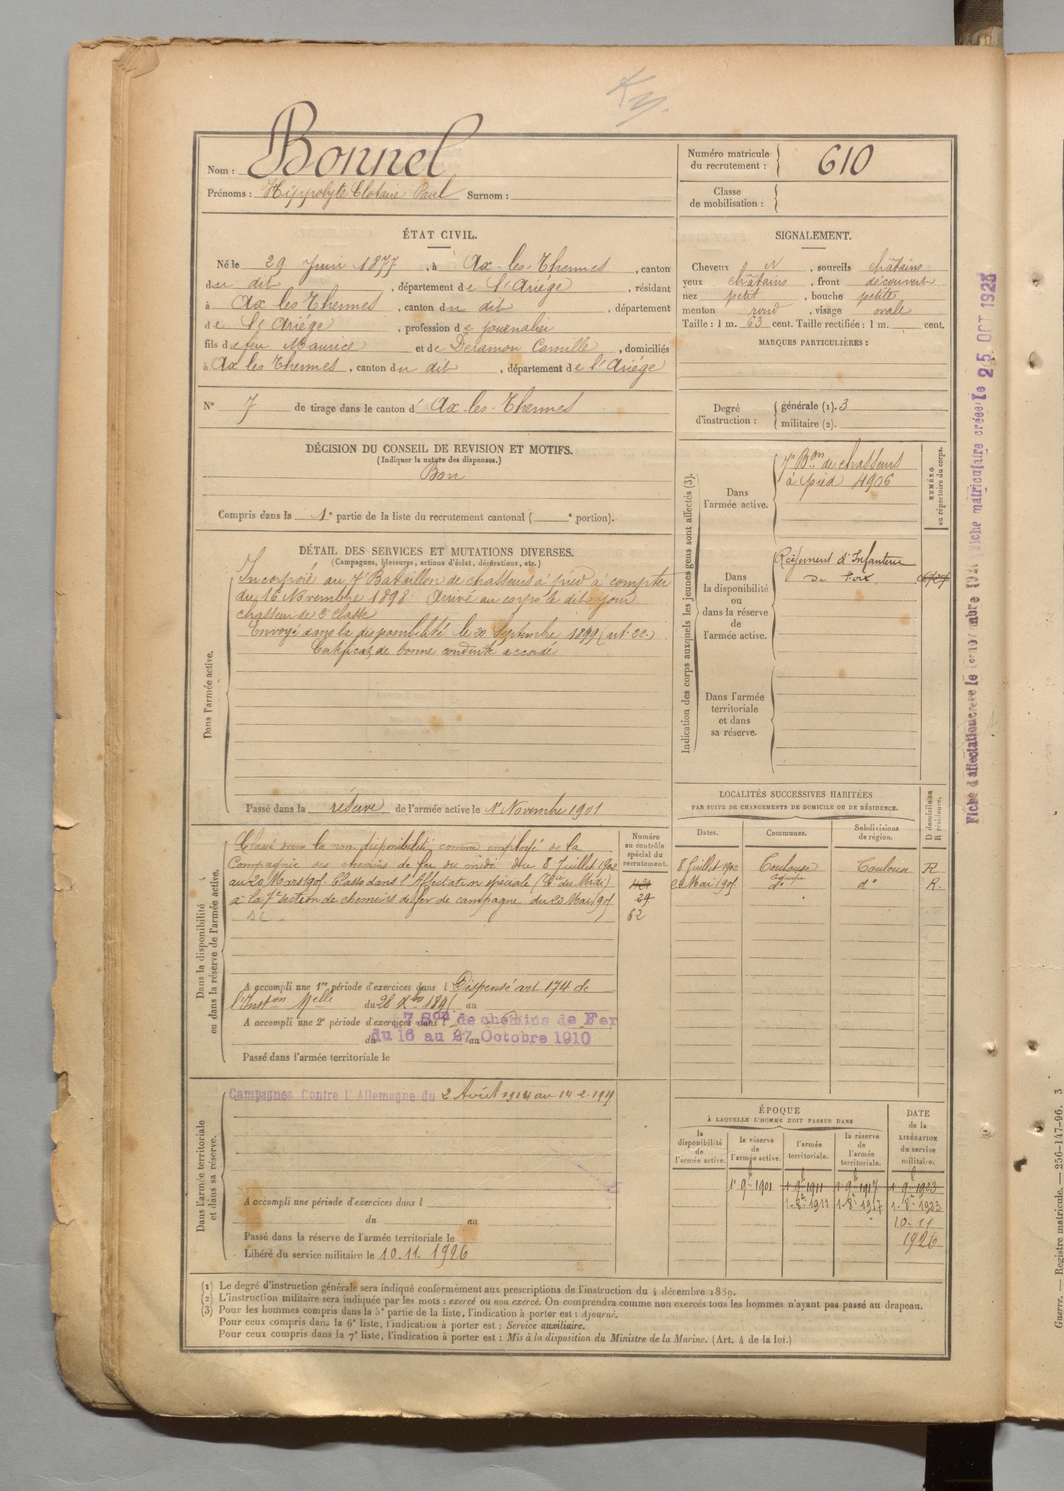 Nom : Bonnel
Prénoms : Hippolyte Clotaire Paul Surnom :
Numéro matricule du recrutement : 610
Classe de mobilisation :
ÉTAT CIVIL.
Né le 29 Juin 1877, à Ax-les-Thermes, canton
du dit, département de l'Ariège, résidant
à Ax les Thermes, canton du dit, département
de l'Ariège, profession de journalier
fils de feu Maurice et de Deramon Camille, domiciliés
à Ax les Thermes, canton du dit, département de l'Ariège
N° 7 de tirage dans le canton d' Ax-les-Thermes
SIGNALEMENT.
Cheveux N, sourcils châtains
yeux châtains, front découvert
nez petit, bouche petite
menton rond, visage ovale
Taille : 1 m. 63 cent. Taille rectifiée : 1 m. cent.
MARQUES PARTICULIÈRES :
Degré d'instruction : générale (1). 3
militaire (2).
DÉCISION DU CONSEIL DE REVISION ET MOTIFS.
(Indiquer la nature des dispenses.)
Bon
Compris dans la 1e partie de la liste du recrutement cantonal ( e portion).
DÉTAIL DES SERVICES ET MUTATIONS DIVERSES.
(Campagnes, blessures, actions d'éclat, décorations, etc.)
Dans l'armée active.
Incorporé au 7e Bataillon de chasseurs à pied à compter
du 16 Novembre 1898 Arrivé au corps le dit jour
chasseur de 2e classe
Envoyé dans la disponibilité le 20 Septembre 1899 (art. 22)
Certificat de bonne conduite accordé
Passé dans la réserve de l'armée active le 1er Novembre 1901
Indication des corps auxquels les jeunes gens sont affectés (3).
NUMÉRO au répertoire du corps.
Dans l'armée active.
7e Bon de chasseurs
à pied 4906
Dans la disponibilité ou dans la réserve de l'armée active.
Régiment d'Infanterie
de Foix
Dans l'armée territoriale et dans sa réserve.
Dans la disponibilité ou dans la réserve de l'armée active.
Classé dans la non disponibilité comme employé de la
Compagnie des chemins de fer du midi du 8 Juillet 1902
au 20 Mars 1905 Classé dans l'Affectation spéciale (Cie du Midi)
à la 7e section de chemins de fer de campagne du 20 Mai 1905
Numéro au contrôle spécial du recrutement.
29
62
A accompli une 1re période d'exercices dans l Dispensé art 174 de
l'Inston Melle du 28 Xbre au
A accompli une 2e période d'exercices dans l 7 Son de chemins de Fer
du 16 au 27 Octobre 1910
Passé dans l'armée territoriale le
LOCALITÉS SUCCESSIVES HABITÉES
PAR SUITE DE CHANGEMENTS DE DOMICILE OU DE RÉSIDENCE.
Dates. Communes. Subdivisions de région. D domicile ou R résidence.
8 Juillet 1902 Toulouse Toulouse R
20 Mai 1905 d° d° R.
Dans l'armée territoriale et dans sa réserve.
Campagnes Contre l'Allemagne du 2 Août 1914 au 14-2-1919
A accompli une période d'exercices dans l
du au
Passé dans la réserve de l'armée territoriale le
Libéré du service militaire le 10.11.1926
ÉPOQUE
À LAQUELLE L'HOMME DOIT PASSER DANS
la disponibilité de l'armée active. la réserve de l'armée active. l'armée territoriale. la réserve de l'armée territoriale. DATE de la LIBÉRATION du service militaire.
1er 9bre 1901 1-9bre 1911 1-9bre 1917 1-9-1923
1-8bre 1911 1-8bre 1917 1-8bre 1923
10-11
1926
(1) Le degré d'instruction générale sera indiqué conformément aux prescriptions de l'instruction du 4 décembre 1889.
(2) L'instruction militaire sera indiquée par les mots : exercé ou non exercé. On comprendra comme non exercés tous les hommes n'ayant pas passé au drapeau.
(3) Pour les hommes compris dans la 5e partie de la liste, l'indication à porter est : Ajourné.
Pour ceux compris dans la 6e liste, l'indication à porter est : Service auxiliaire.
Pour ceux compris dans la 7e liste, l'indication à porter est : Mis à la disposition du Ministre de la Marine. (Art. 4 de la loi.)
Fiche matriculaire créée le 25 OCT 1928
Guerre. — Registre matricule. — 256-147-96. 3